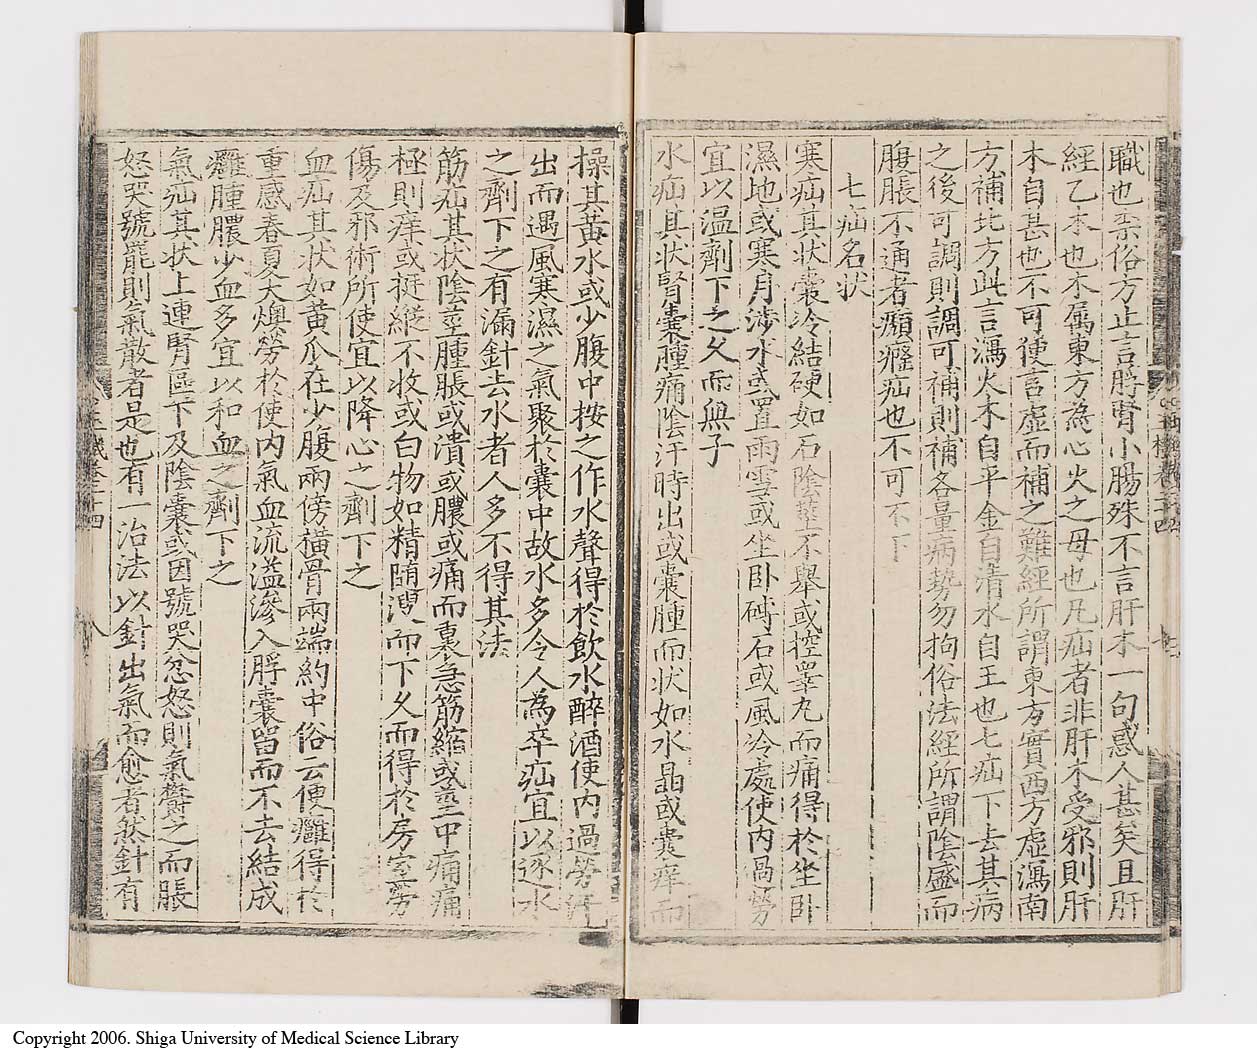 職也柰俗方止言脬腎小腸殊不言肝木一句惑人甚矣且肝
經乙木也木属東方為心火之母也凡疝者非肝木受邪則肝
木自甚也不可便言虛而補之難經所謂東方實西方虛瀉南
方補北方此言瀉火木自平金自清水自王也七疝下去其病
之後可調則調可補則補各量病勢勿拘俗法經所謂陰盛而
腹脹不通者癲癃疝也不可不下
七疝名状
寒疝其状囊冷結硬如石陰莖不舉或控睪丸而痛得於坐卧
濕地或寒月涉水或置雨雪或坐卧磚石或風冷處使內過勞
宜以温劑下之久而無子
水疝其状腎囊腫痛陰汗時出或囊腫而状如水晶或囊痒而
操其黄水或少腹中按之作水聲得於飲水醉酒使內過勞汗
出而遇風寒濕之氣聚於囊中故水多令人為卒疝宜以逐水
之劑下之有漏針去水者人多不得其法
筋疝其状陰莖腫脹或潰或膿或痛而裏急筋縮或莖中痛痛
極則痒或挺縱不收或白物如精随溲而下久而得於房室勞
傷及邪術所使宜以降心之劑下之
血疝其状如黄瓜在少腹兩傍橫骨兩端約中俗云便癰得於
重感春夏大燠勞於使內氣血流溢滲入脬囊留而不去結成
癰腫膿少血多宜以和血之劑下之
氣疝其状上連腎區下及陰囊或因號哭忿怒則氣鬱之而脹
怒哭號罷則氣散者是也有一治法以針出氣而愈者然針有
Copyright 2006. Shiga University of Medical Science Library